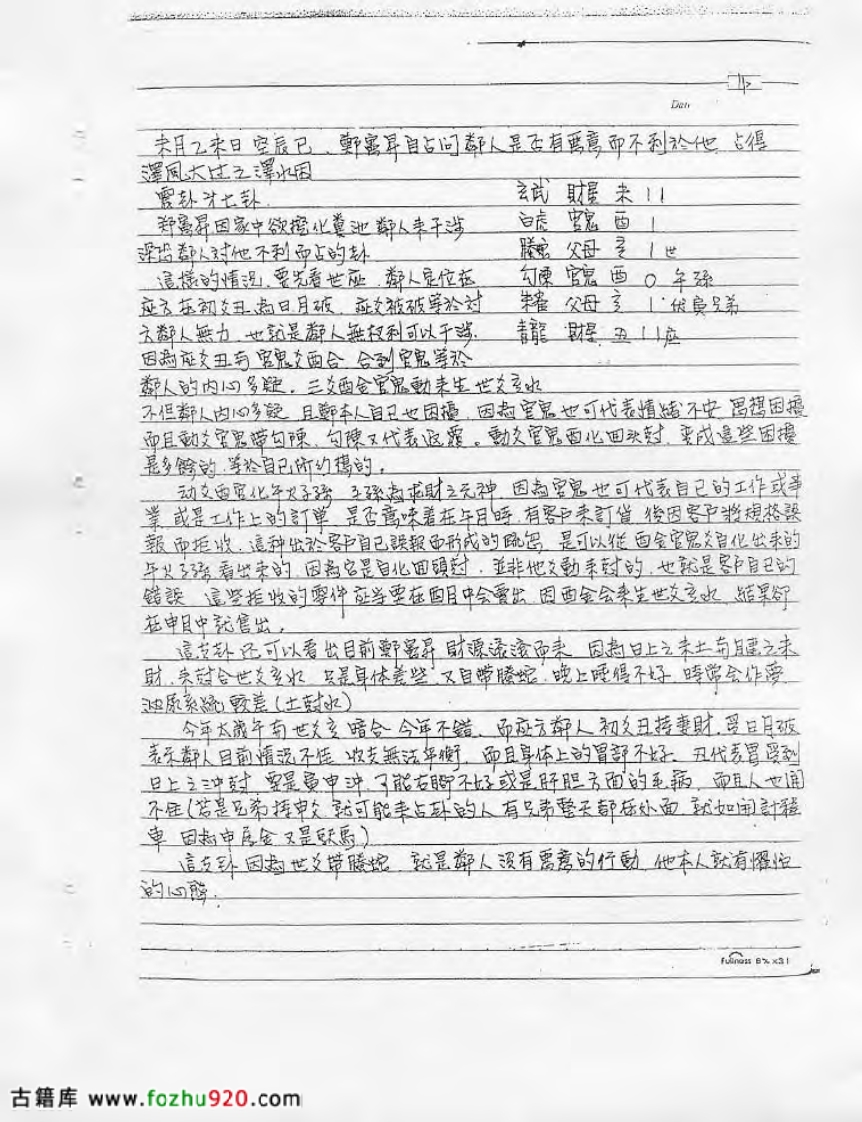 Date
未月乙未日 空辰巳 鄭富昇自占問鄰人是否有惡意而不利於他 占得
澤風大过之澤水困
震卦 廿七卦 玄武 財星 未 11
鄭富昇因家中欲擋化糞池 鄰人来干涉 白虎 官鬼 酉 1
深恐鄰人对他不利而占的卦 騰蛇 父母 亥 1 世
這樣的情況 要先看世应 鄰人定位在 勾陳 官鬼 酉 0 午孫
应方在初爻丑為日月破 应爻被破等於对 朱雀 父母 亥 1 伏寅兄弟
方鄰人無力 也就是鄰人無权利可以干涉 青龍 財星 丑 11 应
因為应爻丑与官鬼爻酉合 合到官鬼等於
鄰人的内心多疑。三爻酉金官鬼動来生世爻亥水
不但鄰人内心多疑 且鄭本人自己也困擾 因為官鬼也可代表情緒不安 思想困擾
而且動爻官鬼帶勾陳 勾陳又代表遲疑。動爻官鬼酉化回头尅 变成這些困擾
是多餘的 等於自己所幻想的。
动爻酉官化午火子孫 子孫為求財之元神 因為官鬼也可代表自己的工作或事
業 或是工作上的訂單 是否意味着在午月時 有客戶来訂貨 後因客戶將規格誤
報而拒收 這种出於客戶自己誤報而形成的 是可以從酉金官鬼爻自化出来的
午火子孫看出来的 因為它是自化回頭尅 並非他爻動来尅的 也就是客戶自己的
錯誤 這些拒收的零件应当要在酉月中会賣出 因酉金会来生世爻亥水 結果卻
在申月中就售出。
這支卦还可以看出目前鄭富昇財源滾滾而来 因為日上之未土与月建之未
財 来尅合世爻亥水 只是身体差些 又自帶騰蛇 晚上睡得不好 時常会作夢
泌尿系統較差(土尅水)
今年太歲午与世爻亥暗合 今年不錯 而应方鄰人初爻丑持妻財 受日月破
表示鄰人目前情況不佳 收支無法平衡 而且身体上的胃部不好。丑代表胃受到
日上之沖尅 要是寅申沖 可能右腳不好或是肝胆方面的毛病 而且人也閒
不住(若是兄弟持申爻 就可能来占卦的人有兄弟整天都在外面 就如開計程
車 因為申屬金又是驛馬)
這支卦因為世爻帶騰蛇 就是鄰人沒有惡意的行動 他本人就有懼怕
的心態。
Fullness 8¾ x31
古籍库 www.fozhu920.com